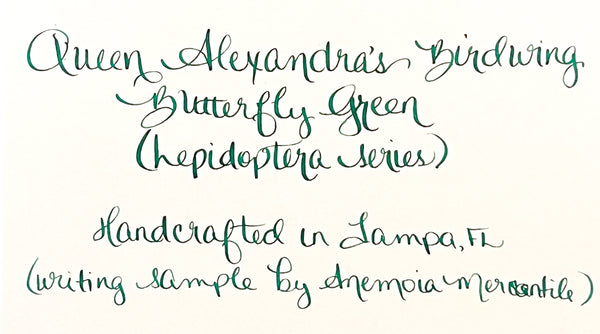 Queen Alexandra's Birdwing
Butterfly Green
(Lepidoptera series)
Handcrafted in Tampa, FL
(writing sample by Anemoia Mercantile)